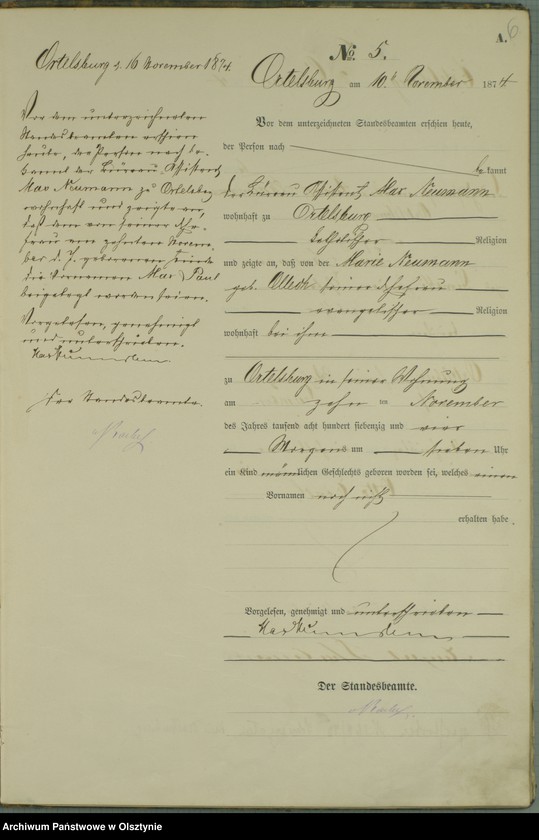 A.
6
Ortelsburg d. 16 November 1874.
Vor dem unterzeichneten
Standesbeamten erschien
heute, der Person nach be-
kannt der Büreau Assistent
Max Neumann zu Ortelsburg
wohnhaft und zeigte an,
daß dem von seiner Ehe-
frau am zehnten Novem-
ber d. J. geborenen Kinde
die Vornamen Max Paul
beigelegt worden seien.
Vorgelesen, genehmigt
und unterschrieben.
Max Neumann
Der Standesbeamte.
No. 5.
Ortelsburg am 10. November 1874
Vor dem unterzeichneten Standesbeamten erschien heute,
der Person nach bekannt
der Büreau Assistent Max Neumann
wohnhaft zu Ortelsburg
katholischer Religion
und zeigte an, daß von der Marie Neumann
geb. Olleck seiner Ehefrau
evangelischer Religion
wohnhaft bei ihm
zu Ortelsburg in seiner Wohnung
am zehn ten November
des Jahres tausend acht hundert siebenzig und vier
Morgens um sieben Uhr
ein Kind männlichen Geschlechts geboren worden sei, welches einen
Vornamen noch nicht
erhalten habe.
Vorgelesen, genehmigt und unterschrieben
Max Neumann
Der Standesbeamte.
Archiwum Państwowe w Olsztynie